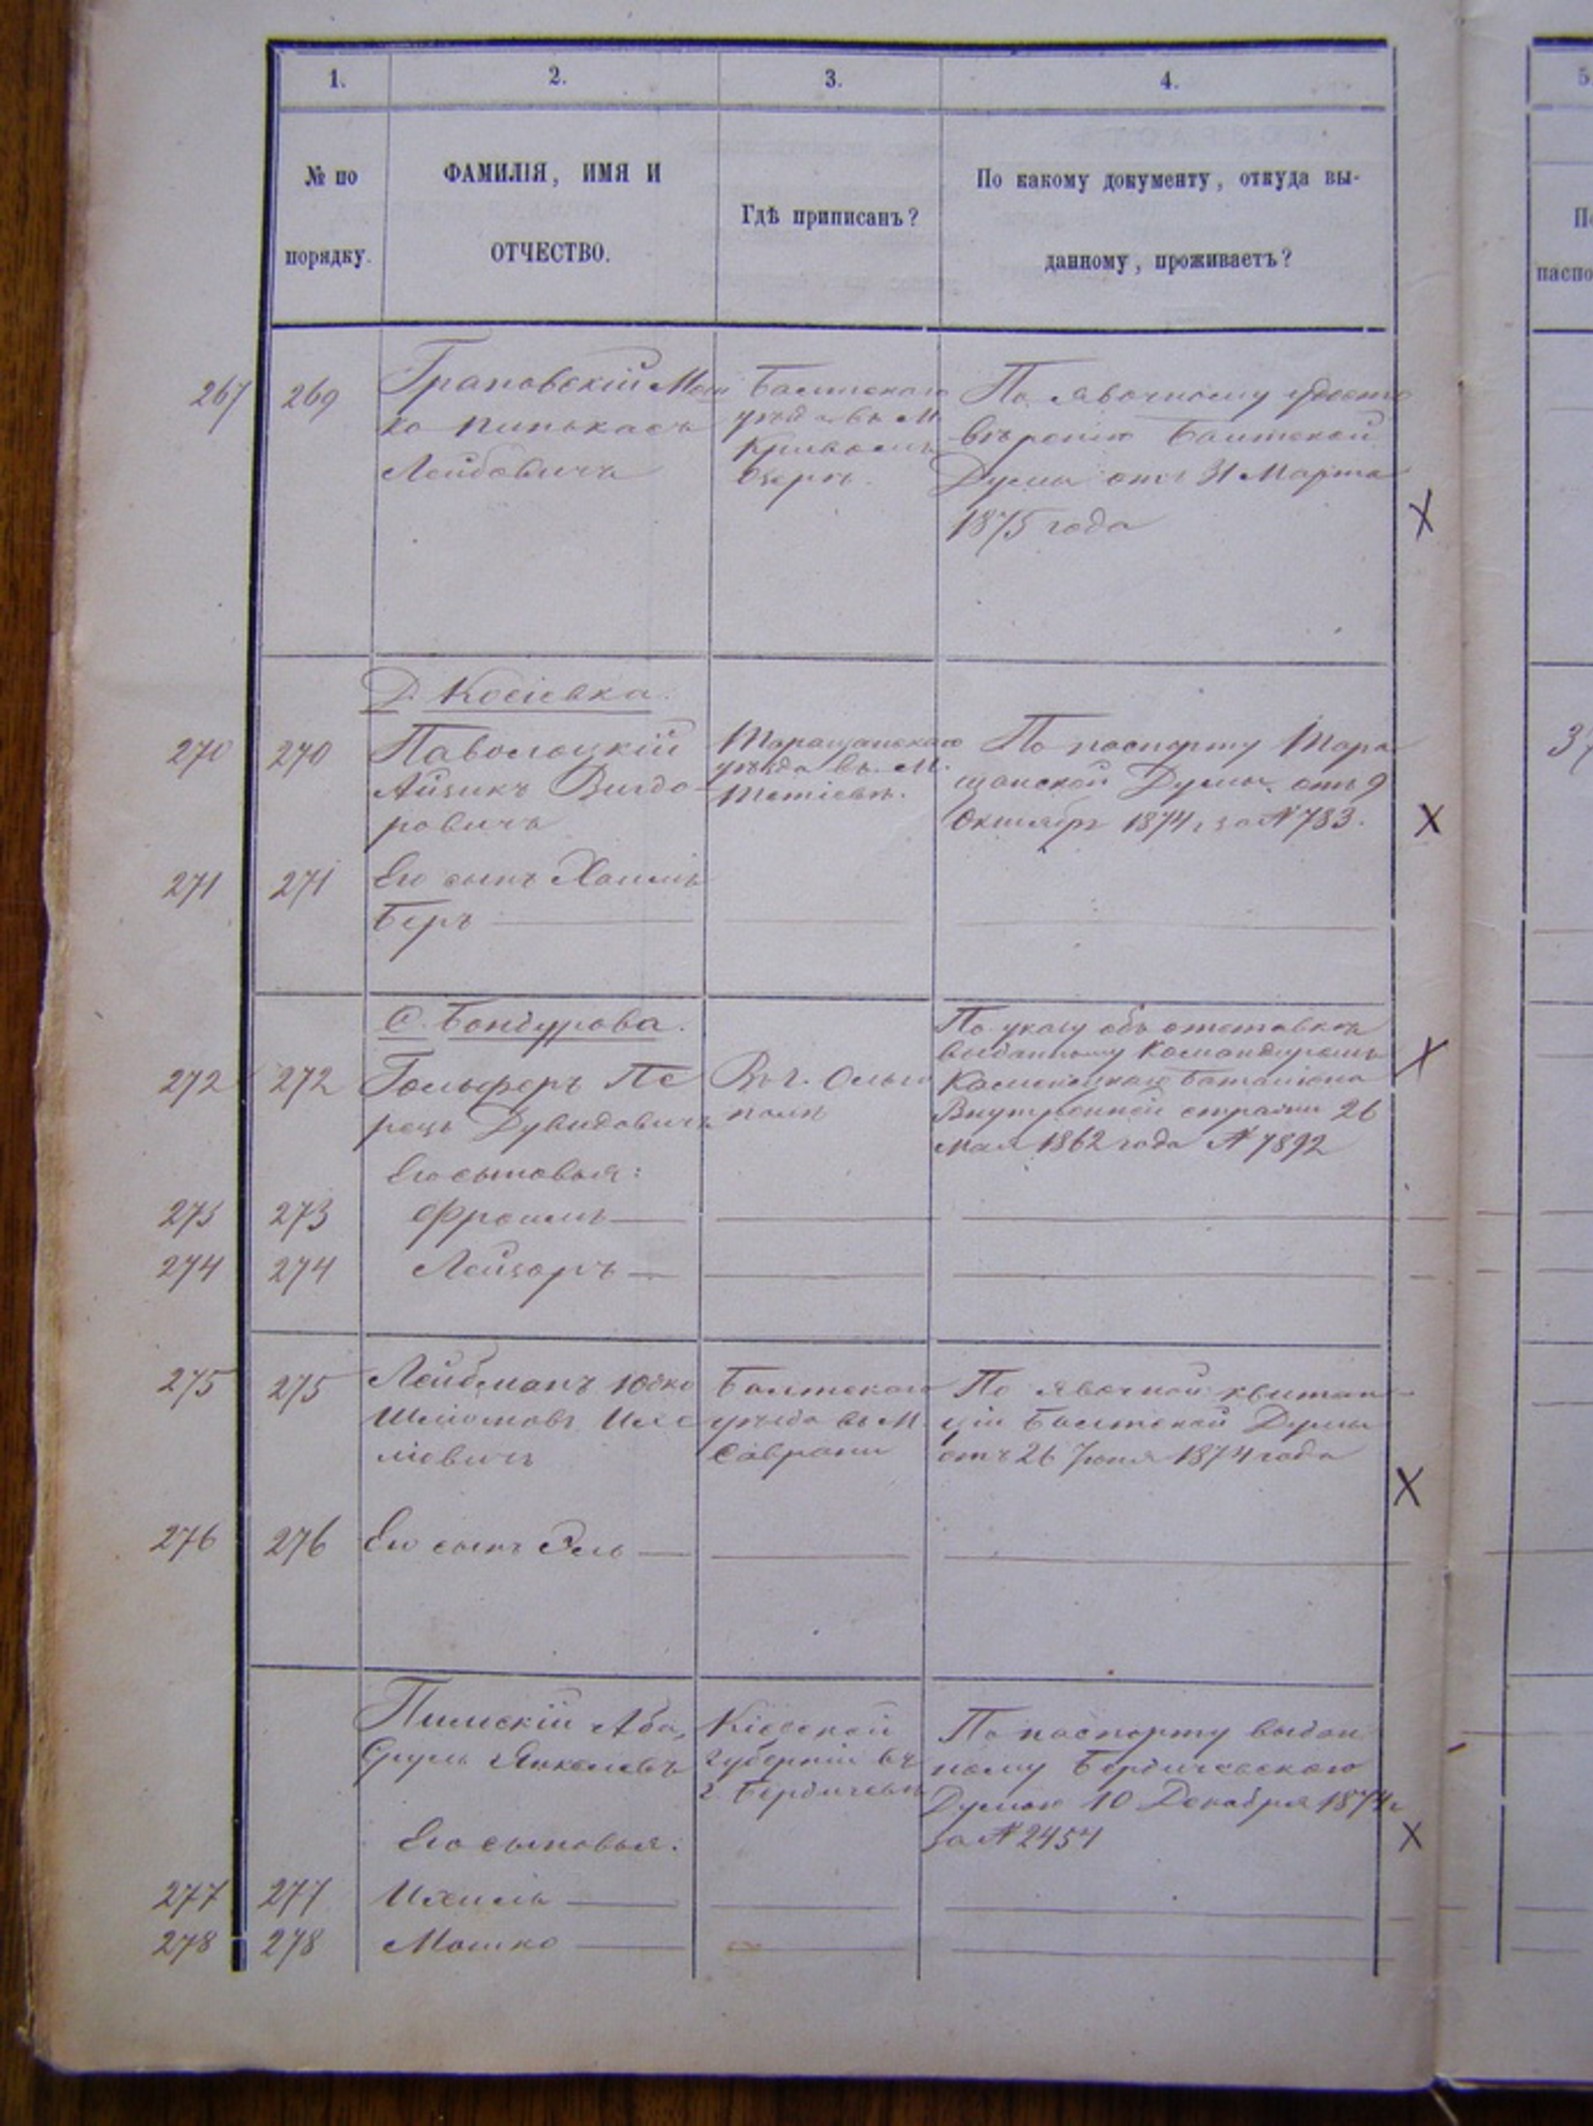 1. 2. 3. 4. 5
№ по
порядку.
ФАМИЛІЯ, ИМЯ И
ОТЧЕСТВО.
Гдѣ приписанъ?
По какому документу, откуда вы-
данному, проживаетъ?
паспо
267 269
Грановскій Мош
ко Пинькасъ
Лейбовичъ
Балтскаго
уѣзда въ м.
Кривомъ
Озерѣ.
По явочному удосто
вѣренію Балтской
Думы отъ 31 Марта
1875 года
X
Д. Косіевка.
270 270
Паволоцкій
Айзикъ Вигдо-
ровичъ
Таращанскаго
уѣзда въ м.
Тетіевѣ.
По паспорту Тара
щанской Думы отъ 9
Октября 1874 г. за № 783.
X
271 271
Его сынъ Хаимъ
Беръ
С. Бондурова.
272 272
Гольферъ Пе
рецъ Дувидовичъ
Въ г. Ольго
полѣ
По указу объ отставкѣ
выданному Командиромъ
Каменецкаго Баталіона
Внутренней стражи 26
мая 1862 года № 7892
X
Его сыновья:
273 273
Фроимъ
274 274
Лейзоръ
275 275
Лейбманъ Юдко
Шліомовъ Ихе
ліовичъ
Балтскаго
уѣзда въ м.
Саврани
По явочной квитан-
ціи Балтской Думы
отъ 26 Іюня 1874 года
X
276 276
Его сынъ Эль
Аба,
Сруль Янкелевъ
Кіевской
губерніи въ
г. Бердичевѣ
По паспорту выдан
ному Бердичевскою
Думою 10 Декабря 1874 г
за № 2454
X
Его сыновья:
277 277
Ихиль
278 278
Мошко